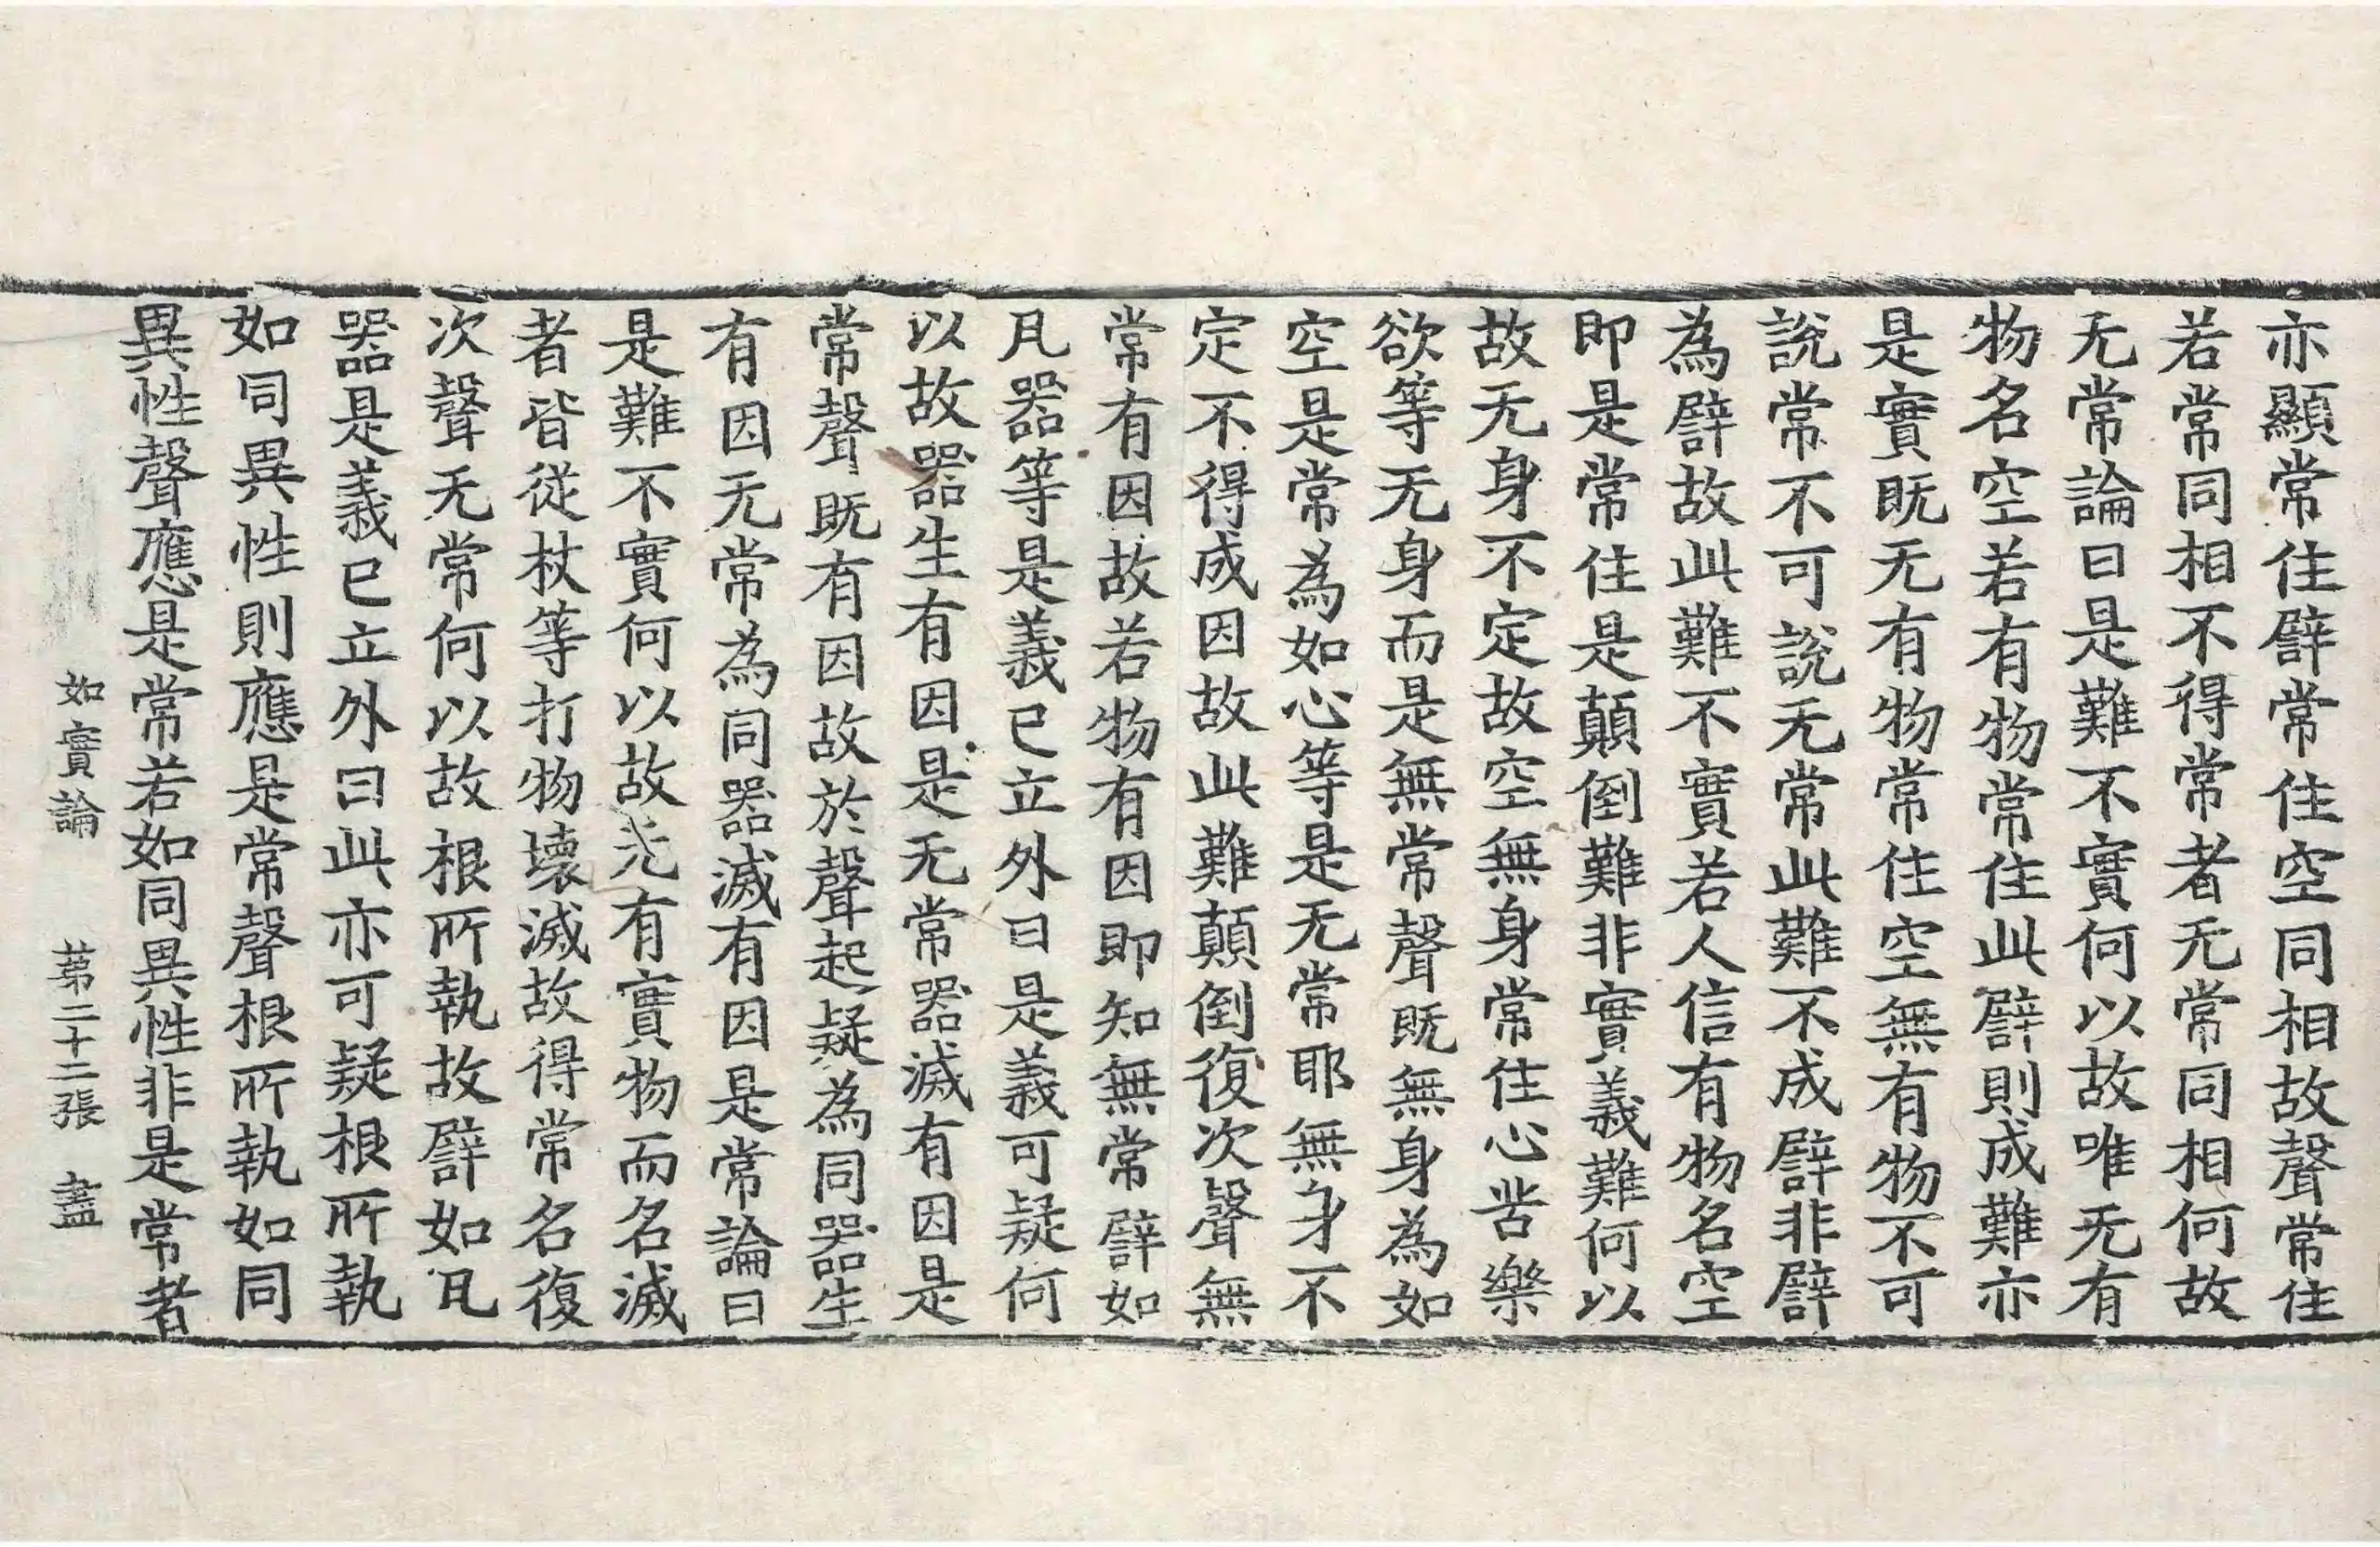 亦顯常住譬常住空同相故聲常住
若常同相不得常者无常同相何故
无常論曰是難不實何以故唯无有
物名空若有物常住此譬則成難亦
是實既无有物常住空無有物不可
說常不可說无常此難不成譬非譬
為譬故此難不實若人信有物名空
即是常住是顛倒難非實義難何以
故无身不定故空無身常住心苦樂
欲等无身而是無常聲既無身為如
空是常為如心等是无常耶無身不
定不得成因故此難顛倒復次聲無
常有因故若物有因即知無常譬如
凡器等是義已立外曰是義可疑何
以故器生有因是无常器滅有因是
常聲既有因故於聲起疑為同器生
有因无常為同器滅有因是常論曰
是難不實何以故无有實物而名滅
者皆從杖等打物壞滅故得常名復
次聲无常何以故根所執故譬如凡
器是義已立外曰此亦可疑根所執
如同異性則應是常聲根所執如同
異性聲應是常若如同異性非是常者
如實論 苐二十二張 盡